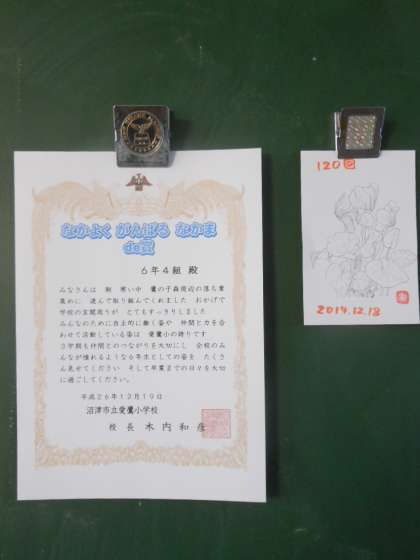 なかよく がんばる なかま
de賞
6年4組 殿
みなさんは 朝 寒い中 鷹の子森周辺の落ち葉
集めに 進んで取り組んでくれました おかげで
学校の玄関周りが とてもすっきりしました
みんなのために自主的に働く姿や 仲間と力を合
わせて活動している姿は 愛鷹小の誇りです
3学期も仲間とのつながりを大切にし 全校のみ
んなが憧れるような6年生としての姿を たくさ
ん見せてください そして卒業までの日々を大切
に過ごしてください。
平成26年12月19日
沼津市立愛鷹小学校
校長 木内和彦
120
2014.12.18